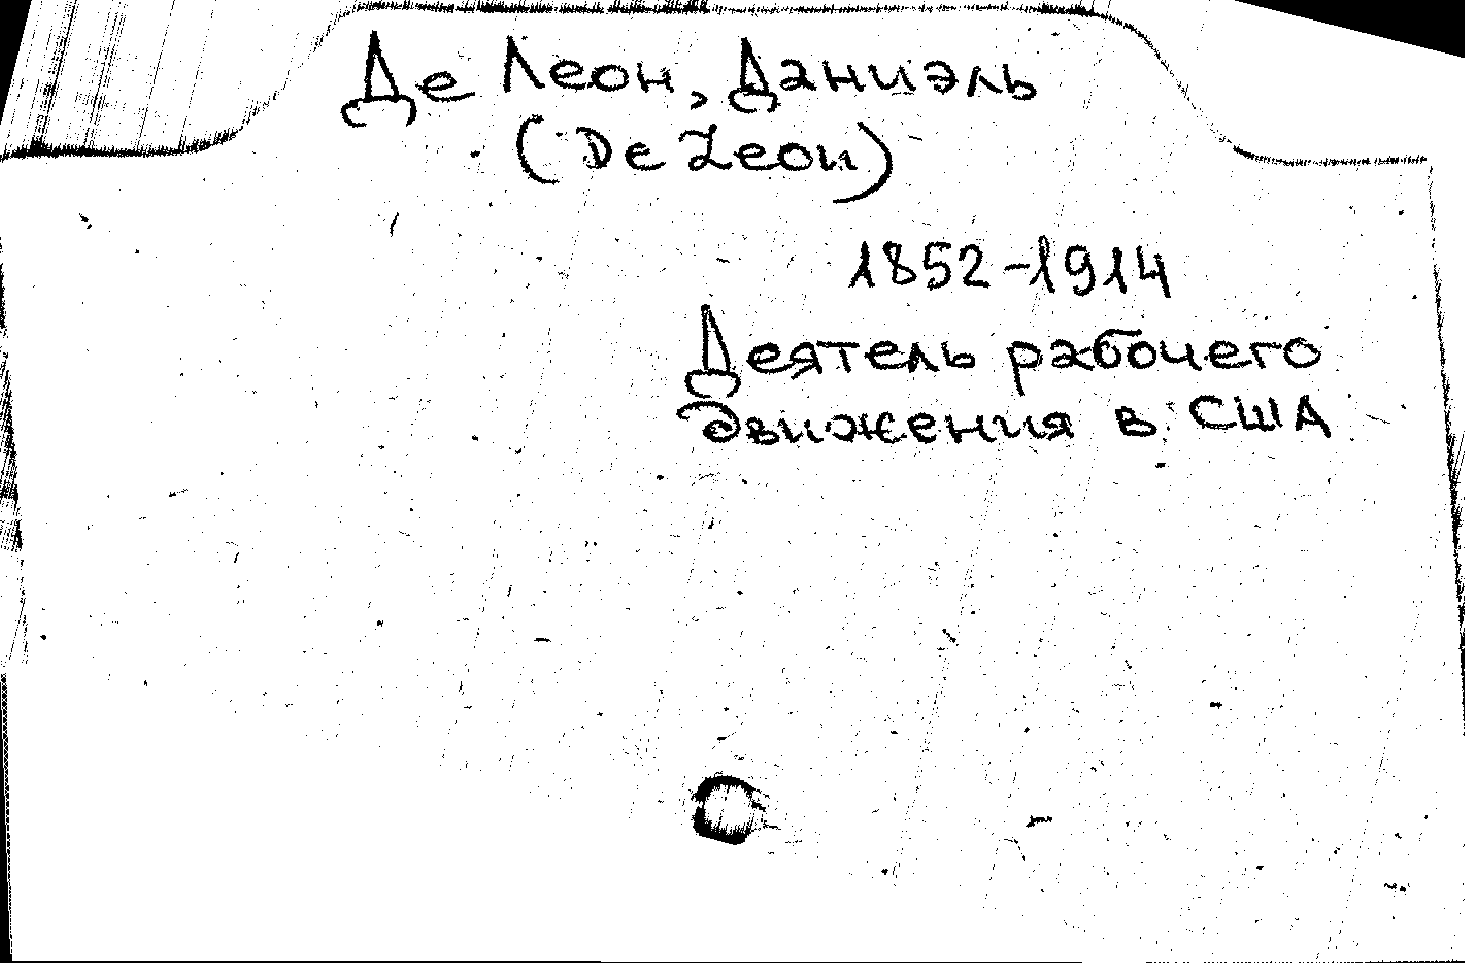 Де Леон, Даниэль
(De Leon)
1852-1914
Деятель рабочего
движения в США